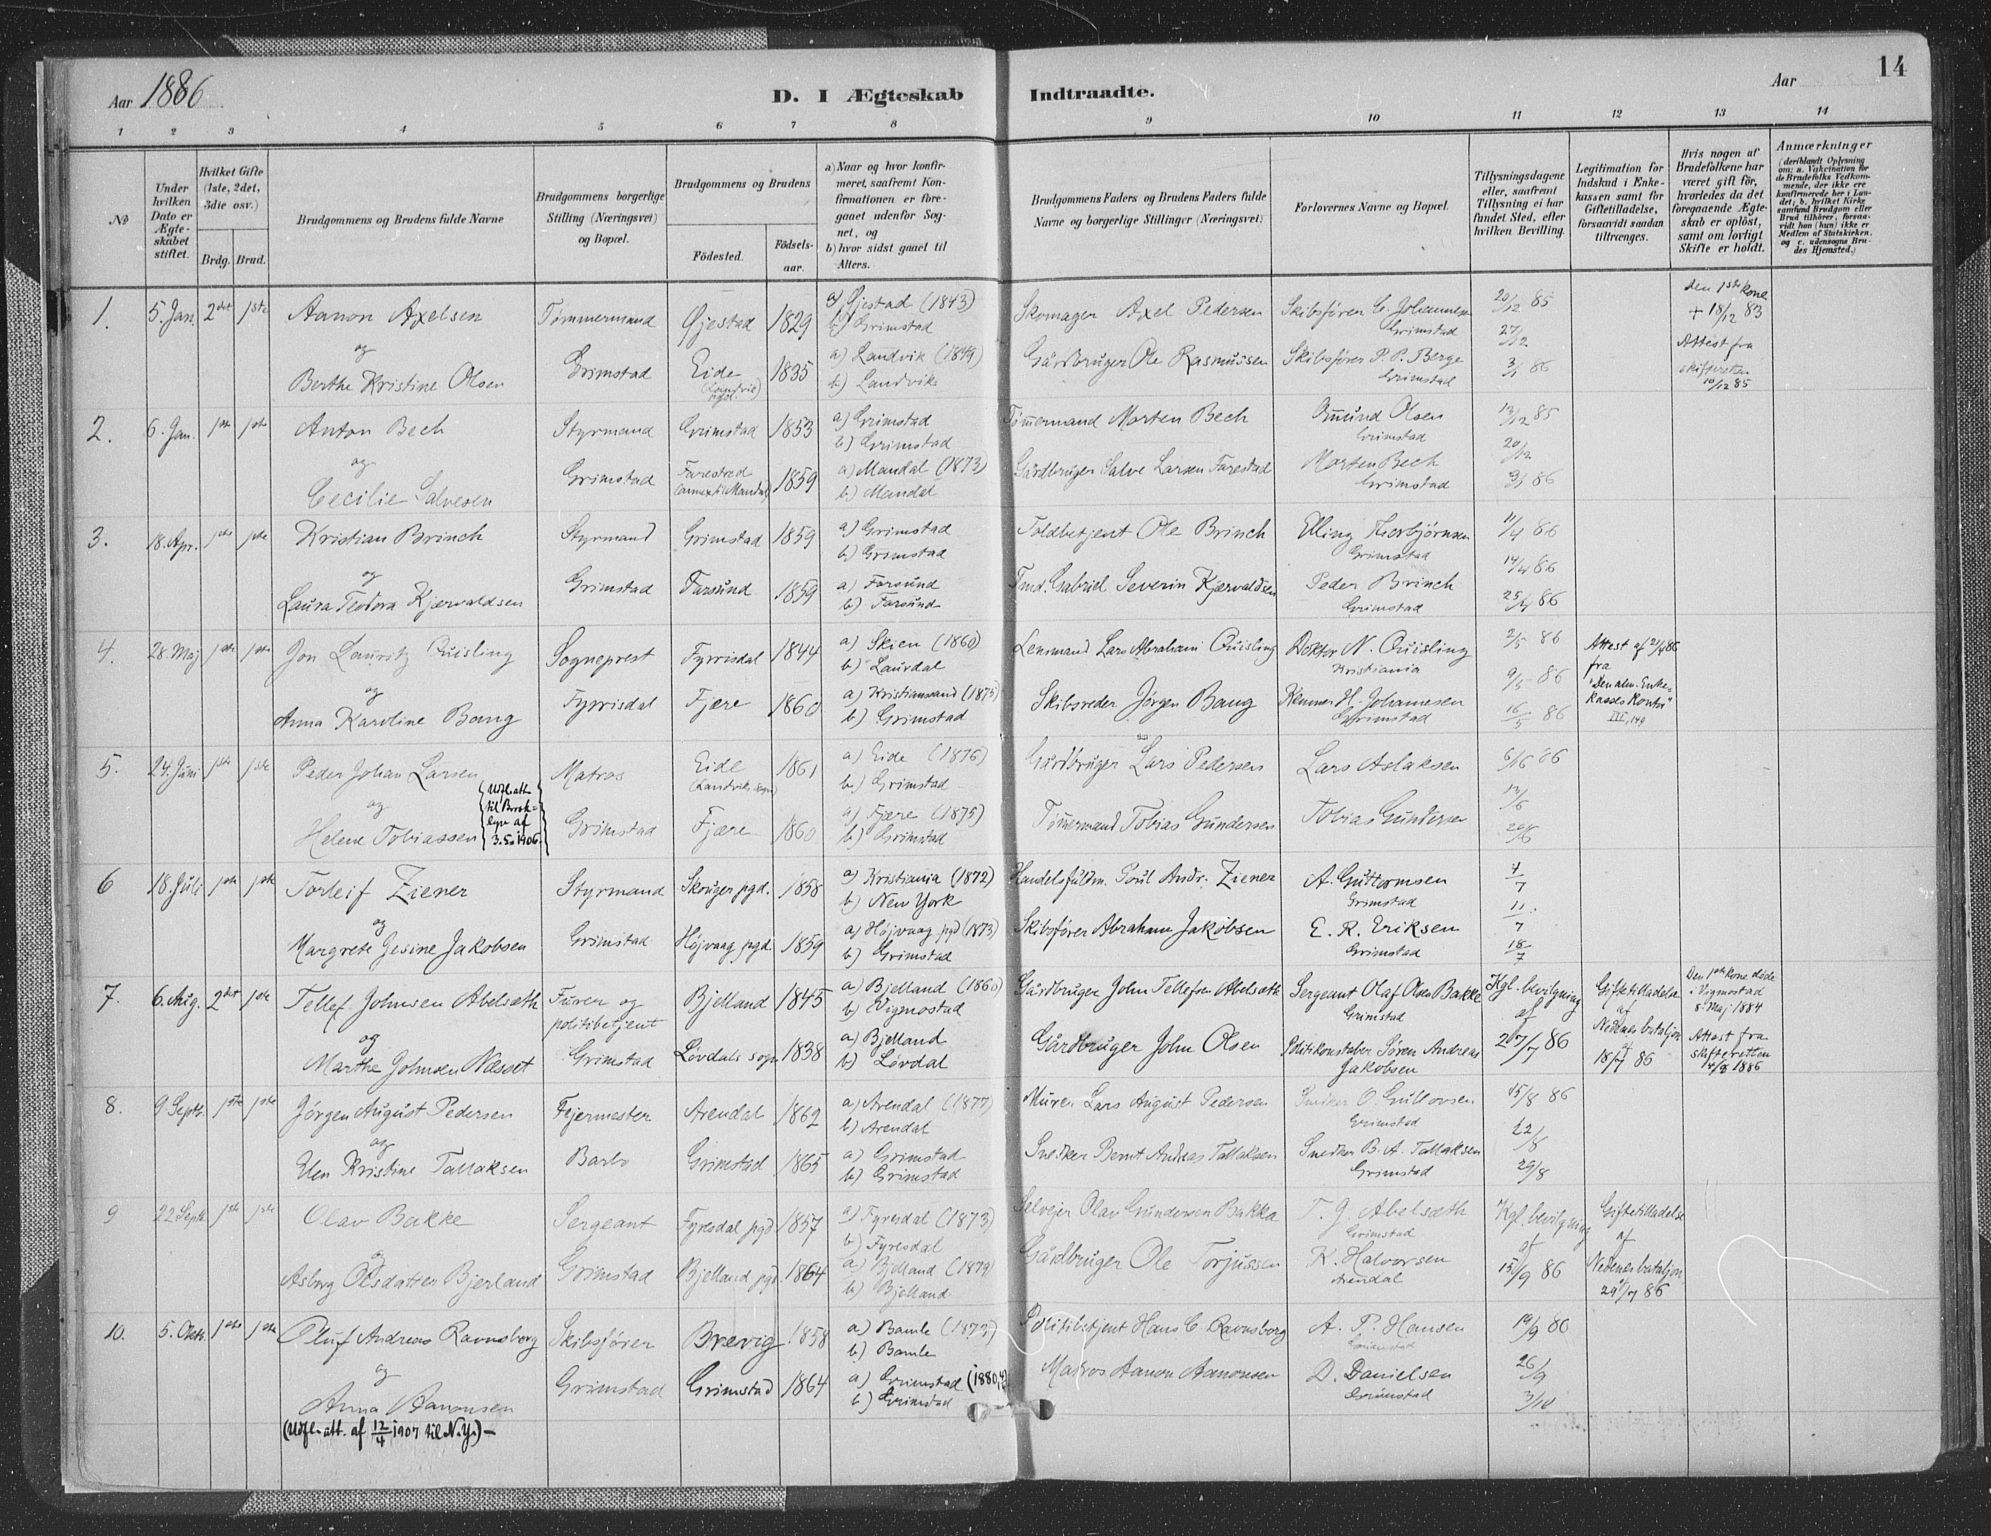 Aar 1886
D. I Ægteskab Indtraadte.
Aar
14
1 2 3 4 5 6 7 8 9 10 11 12 13 14
No
Under hvilken Dato er Ægteskabet stiftet.
Hvilket Gifte (1ste, 2det, 3die osv.)
Brdg. Brud.
Brudgommens og Brudens fulde Navne
Brudgommens borgerlige Stilling (Næringsvei) og Bopæl.
Brudgommens og Brudens
Fødested.
Fødselsaar.
a) Naar og hvor konfirmeret, saafremt Konfirmationen er foregaaet udenfor Sognet, og
b) hvor sidst gaaet til Alters.
Brudgommens Faders og Brudens Faders fulde Navne og borgerlige Stillinger (Næringsvei)
Forlovernes Navne og Bopæl.
Tillysningsdagene eller, saafremt Tillysning ei har fundet Sted, efter hvilken Bevilling.
Legitimation for Indskud i Enkekassen samt for Giftetilladelse, forsaavidt saadan tiltrænges.
Hvis nogen af Brudefolkene har været gift før, hvorledes da det foregaaende Ægteskab er opløst, samt om lovligt Skifte er holdt.
Anmærkninger (deriblandt Oplysning om: a. Vakcination for de Brudefolks Vedkommende, der ikke ere konfirmerede her i Landet; b. hvilket Kirkesamfund Brudgom eller Brud tilhører, forsaavidt han (hun) ikke er Medlem af Statskirken, og c. udensogns Brudes Hjemsted.)
1. 5. Jan. 2det 1ste Aanon Axelsen Tømmermand Øjestad 1829 a) Øjestad (1843) b) Grimstad Skomager Axel Pedersen Skibsfører C. Johannesen Grimstad 20/12 85 27/12 den 1ste kone + 18/12 83
og
Berthe Kristine Olsen Grimstad Eide (Landvik) 1835 a) Landvik (1849) b) Landvik Gårdbruger Ole Rasmussen Skibsfører P. P. Berge Grimstad 3/1 86 Attest fra skifteretten 10/12 85
2. 6. Jan. 1ste 1ste Anton Bech Styrmand Grimstad 1853 a) Grimstad b) Grimstad Tømmermand Morten Bech Omund Olsen Grimstad 13/12 85 20/12
og
Cecilie Salvesen Grimstad Farestad annex til Mandal 1859 a) Mandal (1873) b) Mandal Gårdbruger Salve Larsen Farestad Morten Bech Grimstad 3/1 86
3. 18. Apr. 1ste 1ste Kristian Brinch Styrmand Grimstad 1859 a) Grimstad b) Grimstad Toldbetjent Ole Brinch Elling Thorbjørnsen Grimstad 11/4 86
og
Laura Teodora Kjærvaldsen Grimstad Farsund 1859 a) Farsund b) Farsund Tmd. Gabriel Severin Kjærvaldsen Peder Brinch Grimstad 25/4 86
4. 28. Maj 1ste 1ste Jon Lauritz Quisling Sogneprest Fyrrisdal 1844 a) Skien (1860) b) Laurdal Lensmand Lars Abraham Quisling Doktor N. Quisling Kristiania 2/5 86 9/5 86 Attest af 21/4 86 fra "Den alm. Enkekasses Kontor" III, 149
og
Anna Karoline Bang Fyrrisdal Fjære 1860 a) Kristianssand (1875) b) Grimstad Skibsreder Jørgen Bang Kemner H. Johannesen Grimstad 16/5 86
5. 24. Juni 1ste 1ste Peder Johan Larsen Matros Eide (Landviks sogn) 1861 a) Eide (1876) b) Grimstad Gårdbruger Lars Pedersen Lars Aslaksen 6/6 86 13/6
og
Helene Tobiassen Grimstad Fjære 1860 a) Fjære (1875) b) Grimstad Tømmermand Tobias Gundersen Tobias Gundersen 20/6
{Udfl. att. til Brooklyn af 3.5. 1906}
6 18. Juli 1ste 1ste Torleif Ziener Styrmand Skouger pgd. 1858 a) Kristiania (1872) b) New York Handelsfuldm. Poul Andr. Ziener A. Guttormsen Grimstad 4/7 11/7
og
Margrete Gesine Jakobsen Grimstad Højvaag pgd 1859 a) Højvaag pgd (1873) b) Grimstad Skibsfører Abraham Jakobsen E. R. Eriksen Grimstad 18/7
7. 6. Aug. 2det 1ste Tellef Johnsen Abelsæth Furer og politibetjent Bjelland 1845 a) Bjelland (1860) b) Vigmostad Gårdbruger John Tellefsen Abelsæth Sergeant Olaf Olsen Bakke Grimstad Kgl. bevilgning af Giftetilladelse af Den 1ste kone døde i Vigmostad 8. Maj 1884
og
Marthe Johnsen Næset Grimstad Løvdals sogn 1838 a) Bjelland b) Løvdal Gårdbruger John Olsen Politikonstabel Søren Andreas Jakobsen 27/7 86 Nedenes bataljon af 18/7 86 Attest fra skifteretten 14/8 1886
8. 9 Septr. 1ste 1ste Jørgen August Pedersen Fejermester Arendal 1862 a) Arendal (1877) b) Arendal Murer Lars August Pedersen Snedker O. Gullovsen Grimstad 15/8 86 22/8
og
Elen Kristine Tallaksen Barbo Grimstad 1865 a) Grimstad b) Grimstad Snedker Bernt Andreas Tallaksen Snedker B. A. Tallaksen Grimstad 29/8
9 22 Septr 1ste 1ste Olav Bakke Sergeant Fyresdal pgd 1857 a) Fyresdal (1873) b) Fyresdal Selvejer Olav Gundersen Bakka T. J. Abelsæth Grimstad Kgl. bevilgning af Giftetilladelse af
Asborg Olsdatter Bjerland Grimstad Bjelland pgd. 1864 a) Bjelland (1879) b) Bjelland Gårdbruger Ole Torjussen K. Halvorsen Arendal 15/9 86 Nedenes bataljon 29/7 86
10. 5. Oktr. 1ste 1ste Oluf Andreas Ravnsborg Skibsfører Brevig 1858 a) Bamle (1873) b) Bamle Politibetjent Hans C. Ravnsborg A. P. Hansen Grimstad 19/9 86
og
Anna Aanonsen Grimstad Grimstad 1864 a) Grimstad (1880) b) Grimstad Matros Aanon Aanonsen D. Danielsen Grimstad 26/9 3/10
(Udfl. att. af 12/4 1907 til N.Y.) —